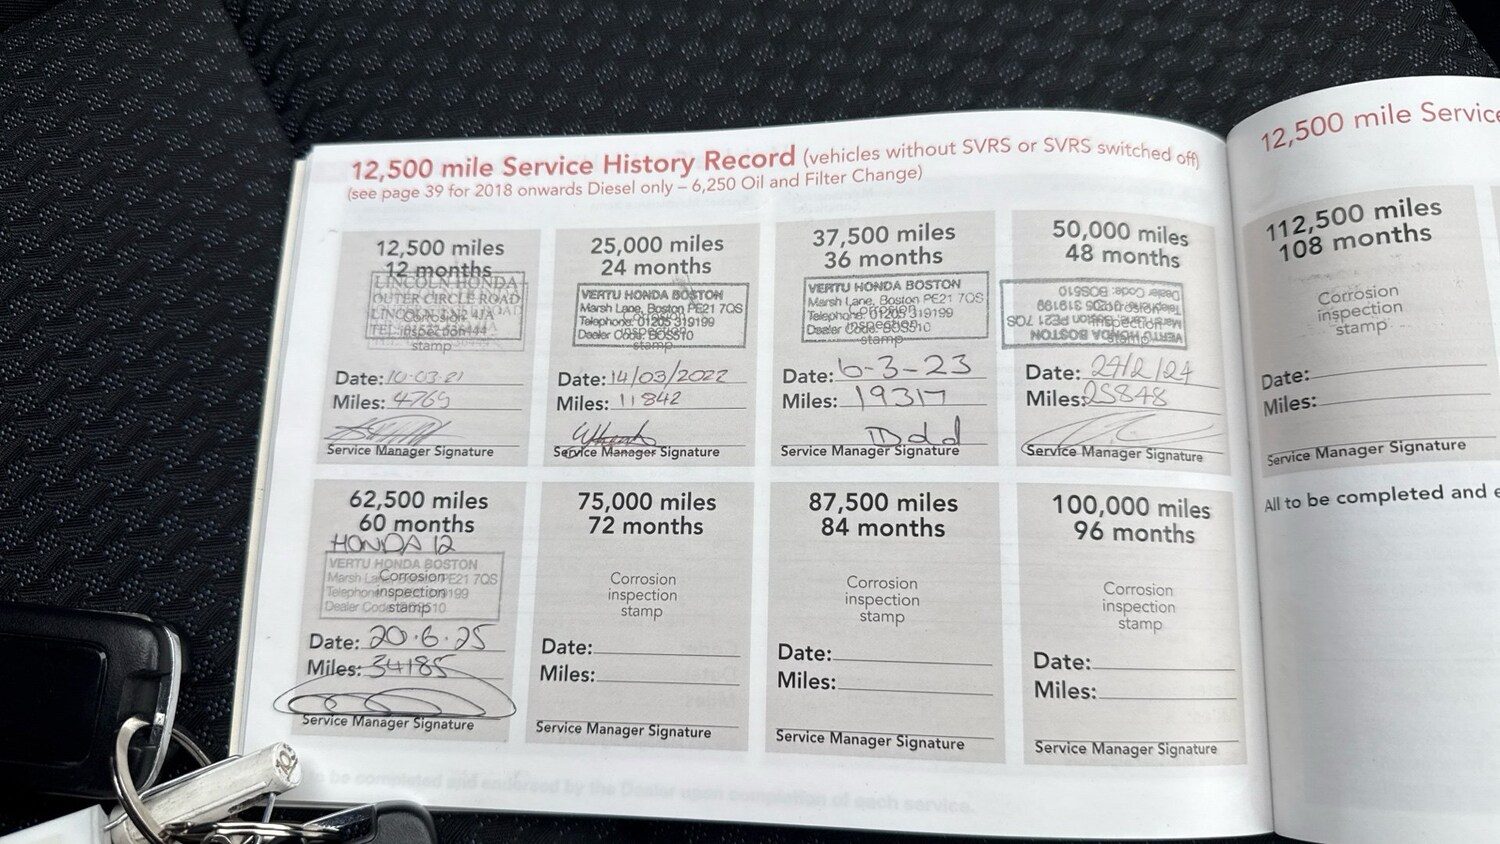 12,500 mile Service History Record (vehicles without SVRS or SVRS switched off)
(see page 39 for 2018 onwards Diesel only – 6,250 Oil and Filter Change)
12,500 miles
12 months
LINCOLN HONDA
OUTER CIRCLE ROAD
LINCOLN LN2 4JA
Corrosion
inspection
stamp
Date: 10-03-21
Miles: 4765
Service Manager Signature
25,000 miles
24 months
VERTU HONDA BOSTON
Marsh Lane, Boston PE21 7QS
Telephone: 01205 319199
Dealer Code: BOS510
Corrosion
inspection
stamp
Date: 14/03/2022
Miles: 11842
Service Manager Signature
37,500 miles
36 months
VERTU HONDA BOSTON
Marsh Lane, Boston PE21 7QS
Telephone: 01205 319199
Dealer Code: BOS510
Corrosion
inspection
stamp
Date: 6-3-23
Miles: 19317
Service Manager Signature
50,000 miles
48 months
VERTU HONDA BOSTON
Marsh Lane, Boston PE21 7QS
Telephone: 01205 319199
Dealer Code: BOS510
Corrosion
inspection
stamp
Date: 24/2/24
Miles: 25848
Service Manager Signature
62,500 miles
60 months
HONDA 12
VERTU HONDA BOSTON
Marsh Lane, Boston PE21 7QS
Telephone: 01205 319199
Dealer Code: BOS510
Corrosion
inspection
stamp
Date: 20.6.25
Miles: 34185
Service Manager Signature
75,000 miles
72 months
Corrosion
inspection
stamp
Date:
Miles:
Service Manager Signature
87,500 miles
84 months
Corrosion
inspection
stamp
Date:
Miles:
Service Manager Signature
100,000 miles
96 months
Corrosion
inspection
stamp
Date:
Miles:
Service Manager Signature
12,500 mile Service
112,500 miles
108 months
Corrosion
inspection
stamp
Date:
Miles:
Service Manager Signature
All to be completed and e